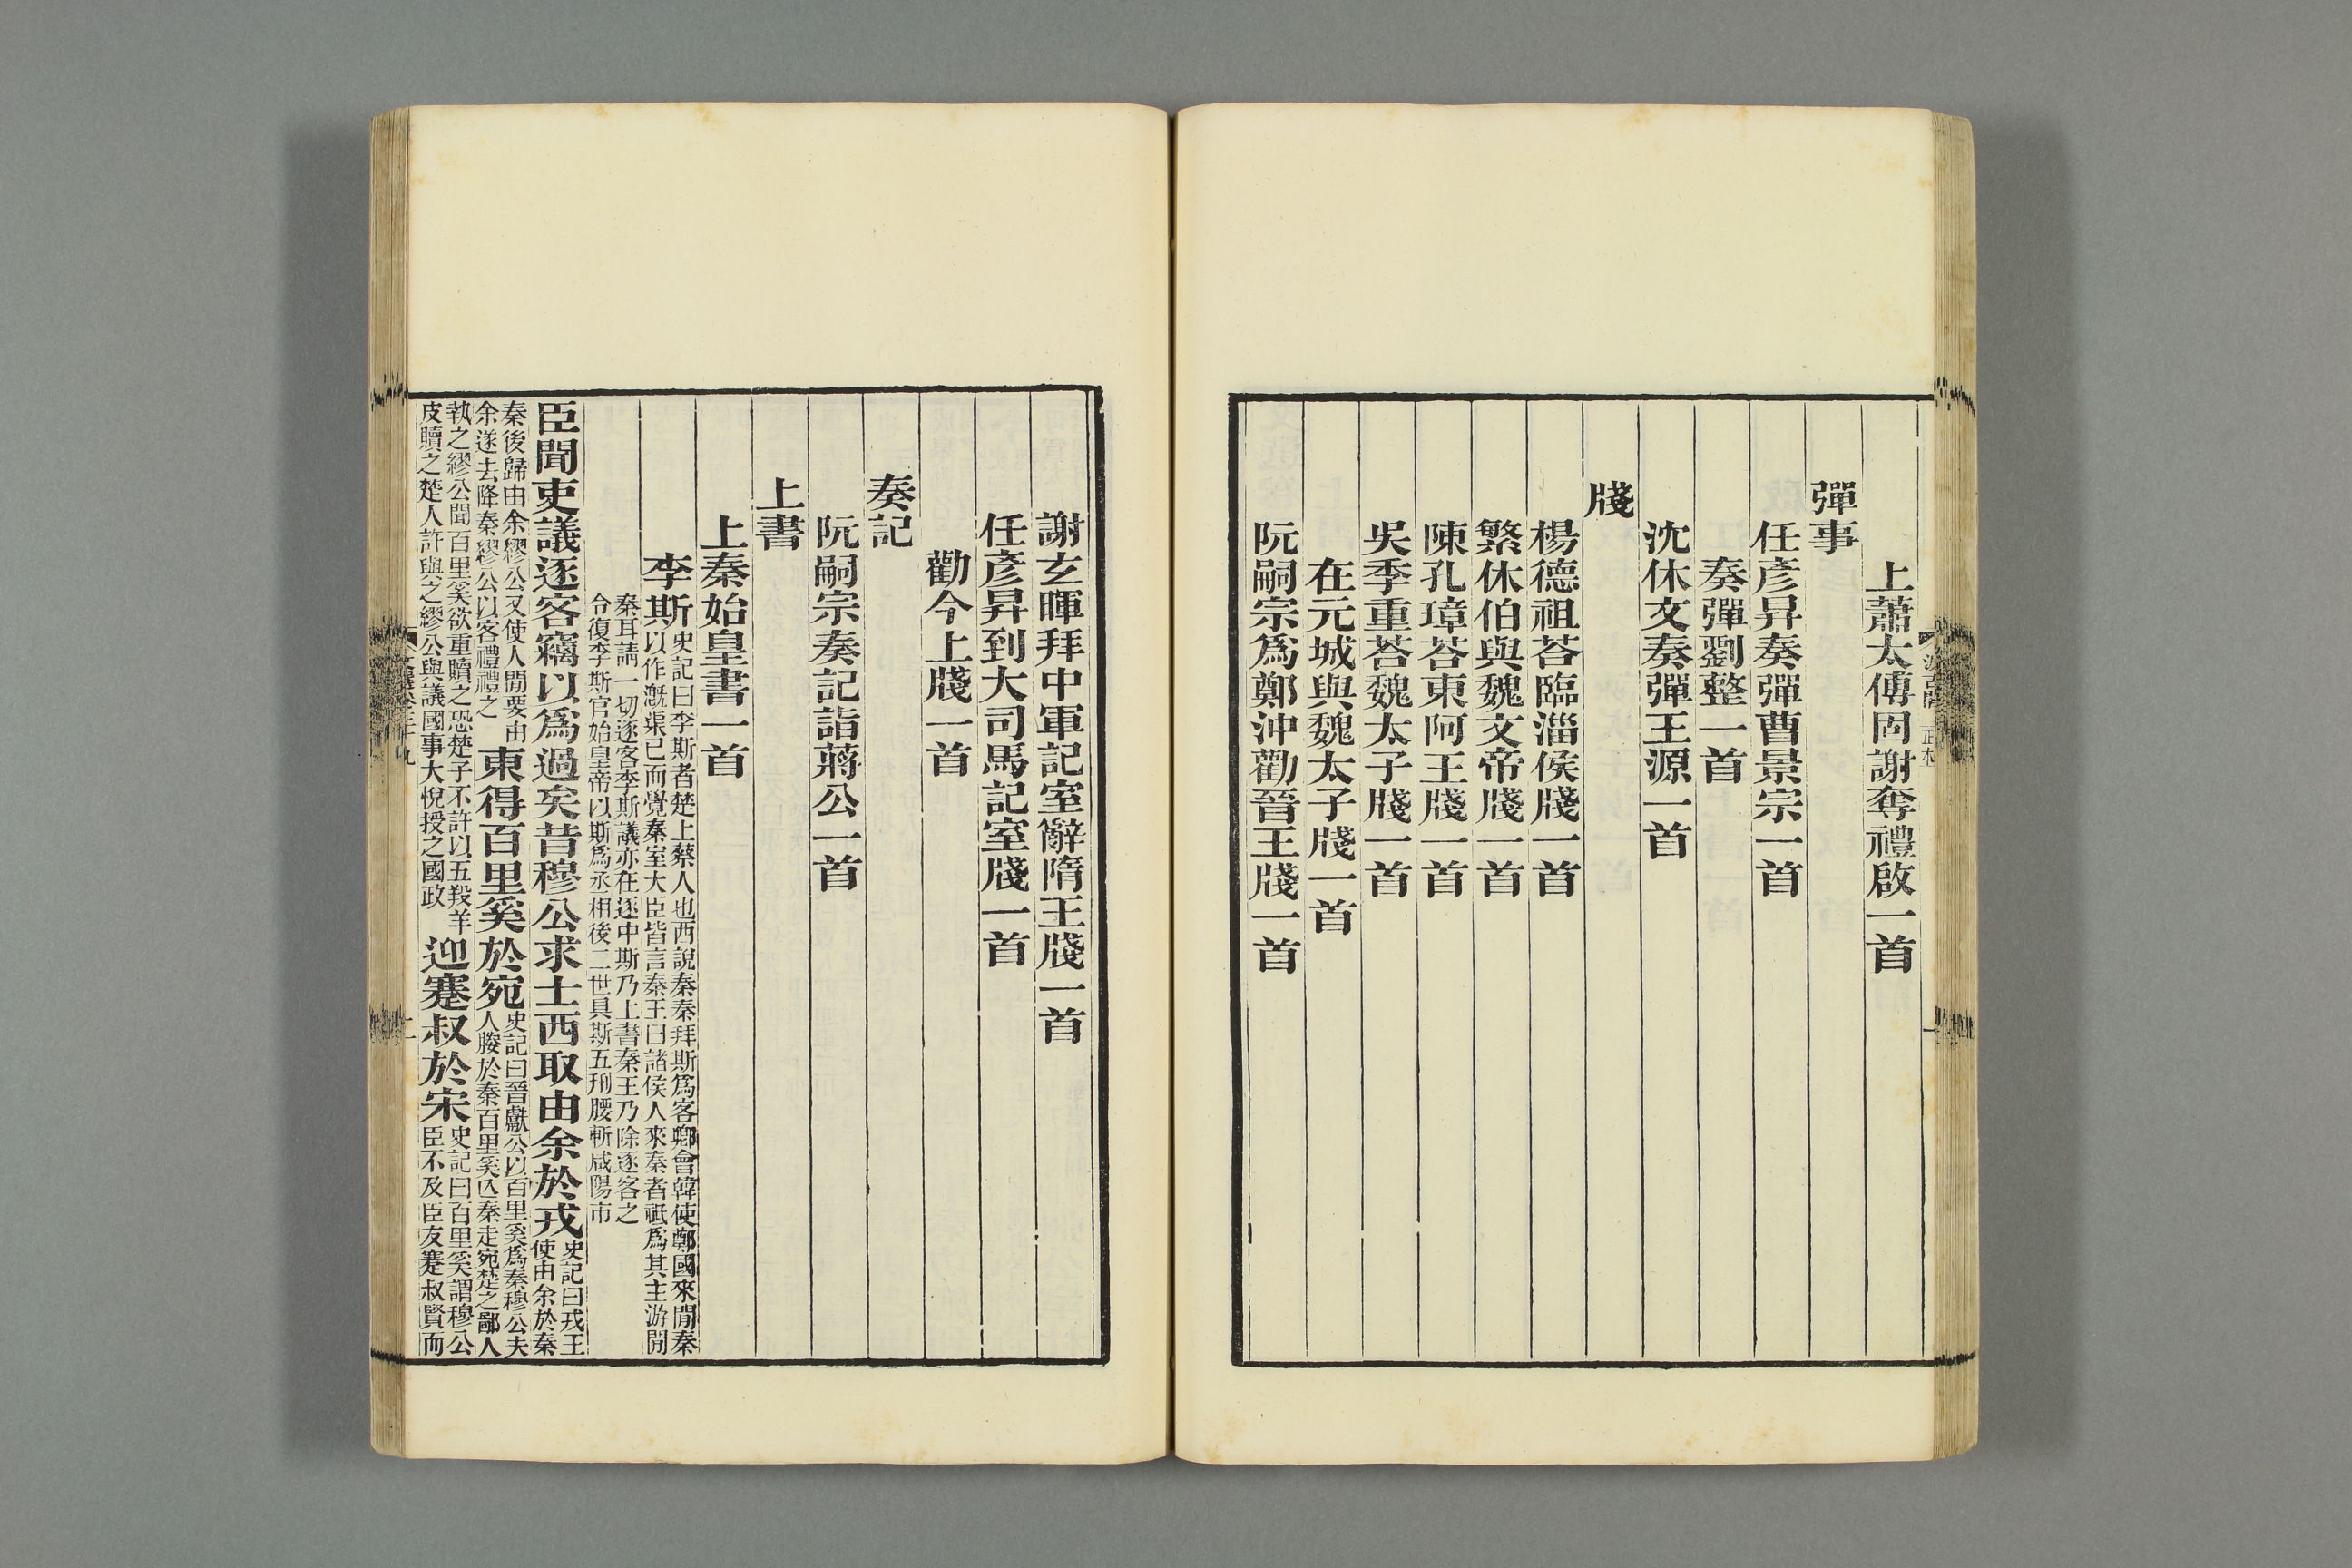 上蕭太傅固謝奪禮啟一首
彈事
任彥昇奏彈曹景宗一首
奏彈劉整一首
沈休文奏彈王源一首
牋
楊德祖荅臨淄侯牋一首
繁休伯與魏文帝牋一首
陳孔璋荅東阿王牋一首
吳季重荅魏太子牋一首
在元城與魏太子牋一首
阮嗣宗爲鄭沖勸晉王牋一首
謝玄暉拜中軍記室辭隋王牋一首
任彥昇到大司馬記室牋一首
勸今上牋一首
奏記
阮嗣宗奏記詣蔣公一首
上書
上秦始皇書一首
李斯史記曰李斯者楚上蔡人也西說秦秦拜斯爲客卿會韓使鄭國來閒秦
以作溉渠已而覺秦室大臣皆言秦王曰諸侯人來秦者祗爲其主游閒
秦耳請一切逐客李斯議亦在逐中斯乃上書秦王乃除逐客之
令復李斯官始皇帝以斯爲丞相後二世具斯五刑腰斬咸陽市
臣聞吏議逐客竊以爲過矣昔穆公求士西取由余於戎史記曰戎王
使由余於秦
秦後歸由余繆公又使人閒要由
余遂去降秦繆公以客禮禮之
東得百里奚於宛史記曰晉獻公以百里奚爲秦穆公夫
人媵於秦百里奚亾秦走宛楚之鄙人
執之繆公聞百里奚欲重贖之恐楚子不許以五羖羊
皮贖之楚人許與之繆公與議國事大悅授之國政
迎蹇叔於宋史記曰百里奚謂穆公
臣不及臣友蹇叔賢而